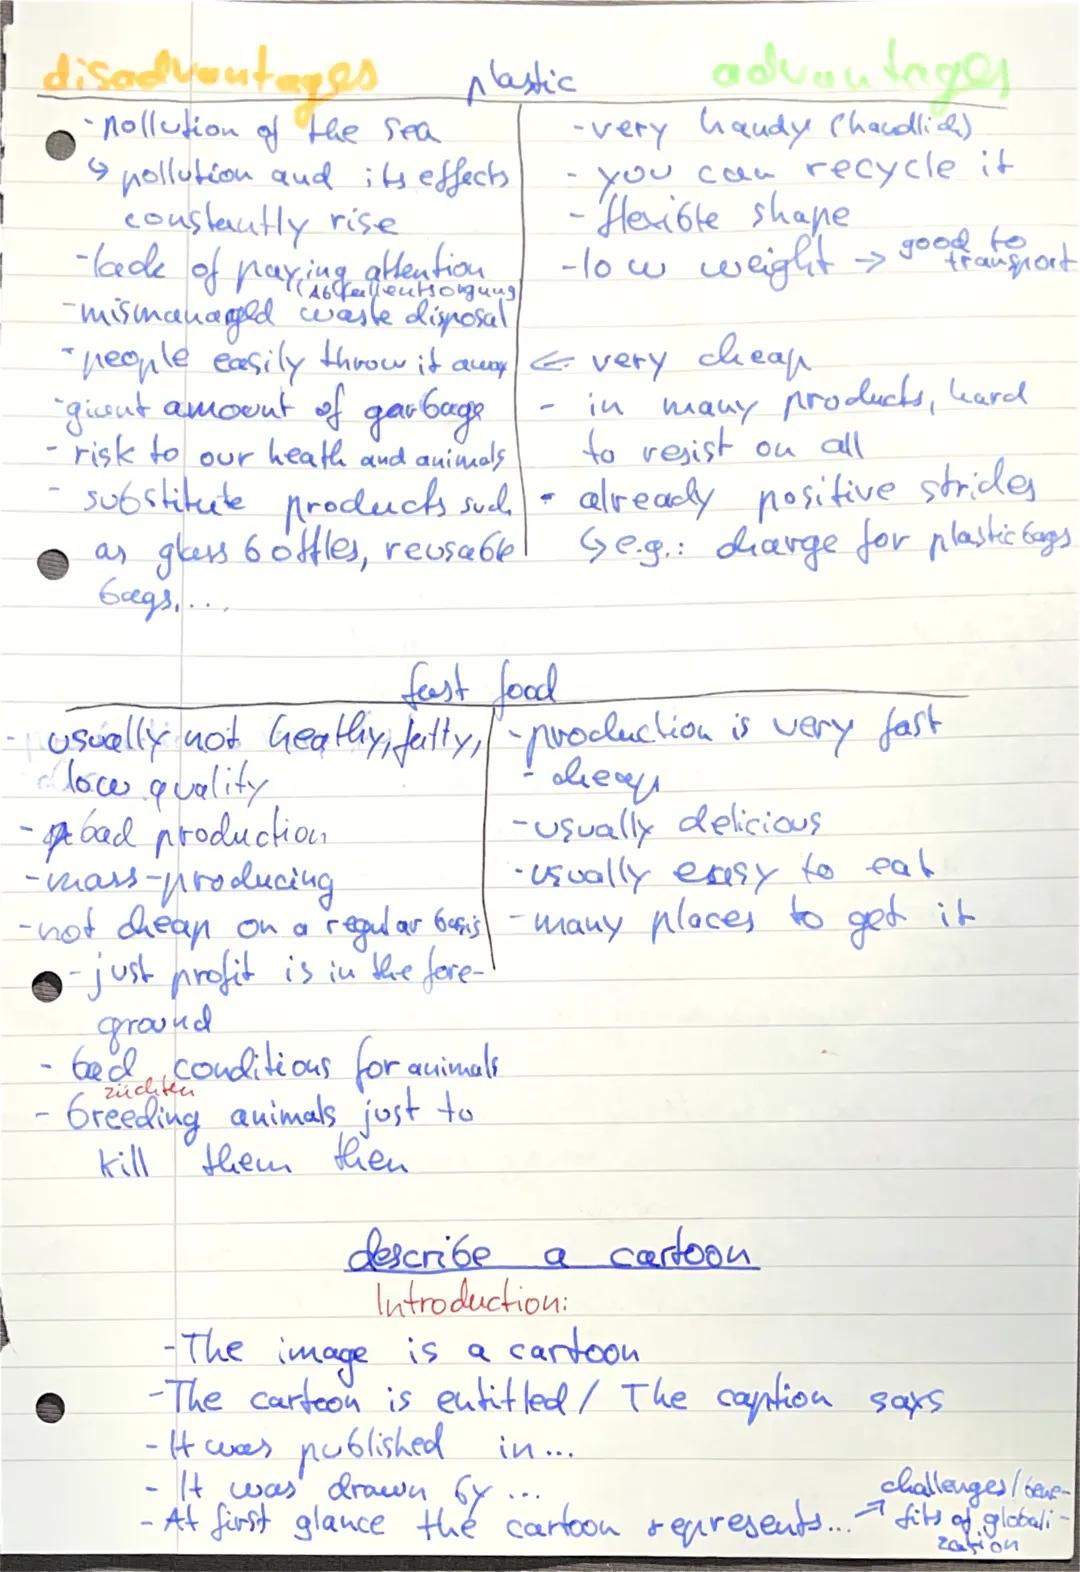 disadvantages plastic advantages
- pollution of the sea
↳ pollution and its effects
constantly rise
- lack of paying attention
(Abfallentsorgung)
- mismanaged waste disposal
- people easily throw it away
- giant amount of garbage
- risk to our heath and animals
- substitute products such
as glass bottles, reusable
bags, ...
- very handy (handlich)
- you can recycle it
- flexible shape
- low weight → good to
transport
← very cheap
- in many products, hard
to resist on all
- already positive strides
↳ e.g.: charge for plastic bags
fast food
- usually not heathy, fatty,
low quality
- bad production
- mass-producing
- not cheap on a regular basis
- just profit is in the fore-
ground
- bad conditions for animals
züchten
- breeding animals just to
kill them then
- production is very fast
- cheap
- usually delicious
- usually easy to eat
- many places to get it
describe a cartoon
Introduction:
- The image is a cartoon
- The cartoon is entitled / The caption says
- It was published in ...
- It was drawn by ...
- At first glance the cartoon represents... → challenges / bene-
fits of globali-
zation